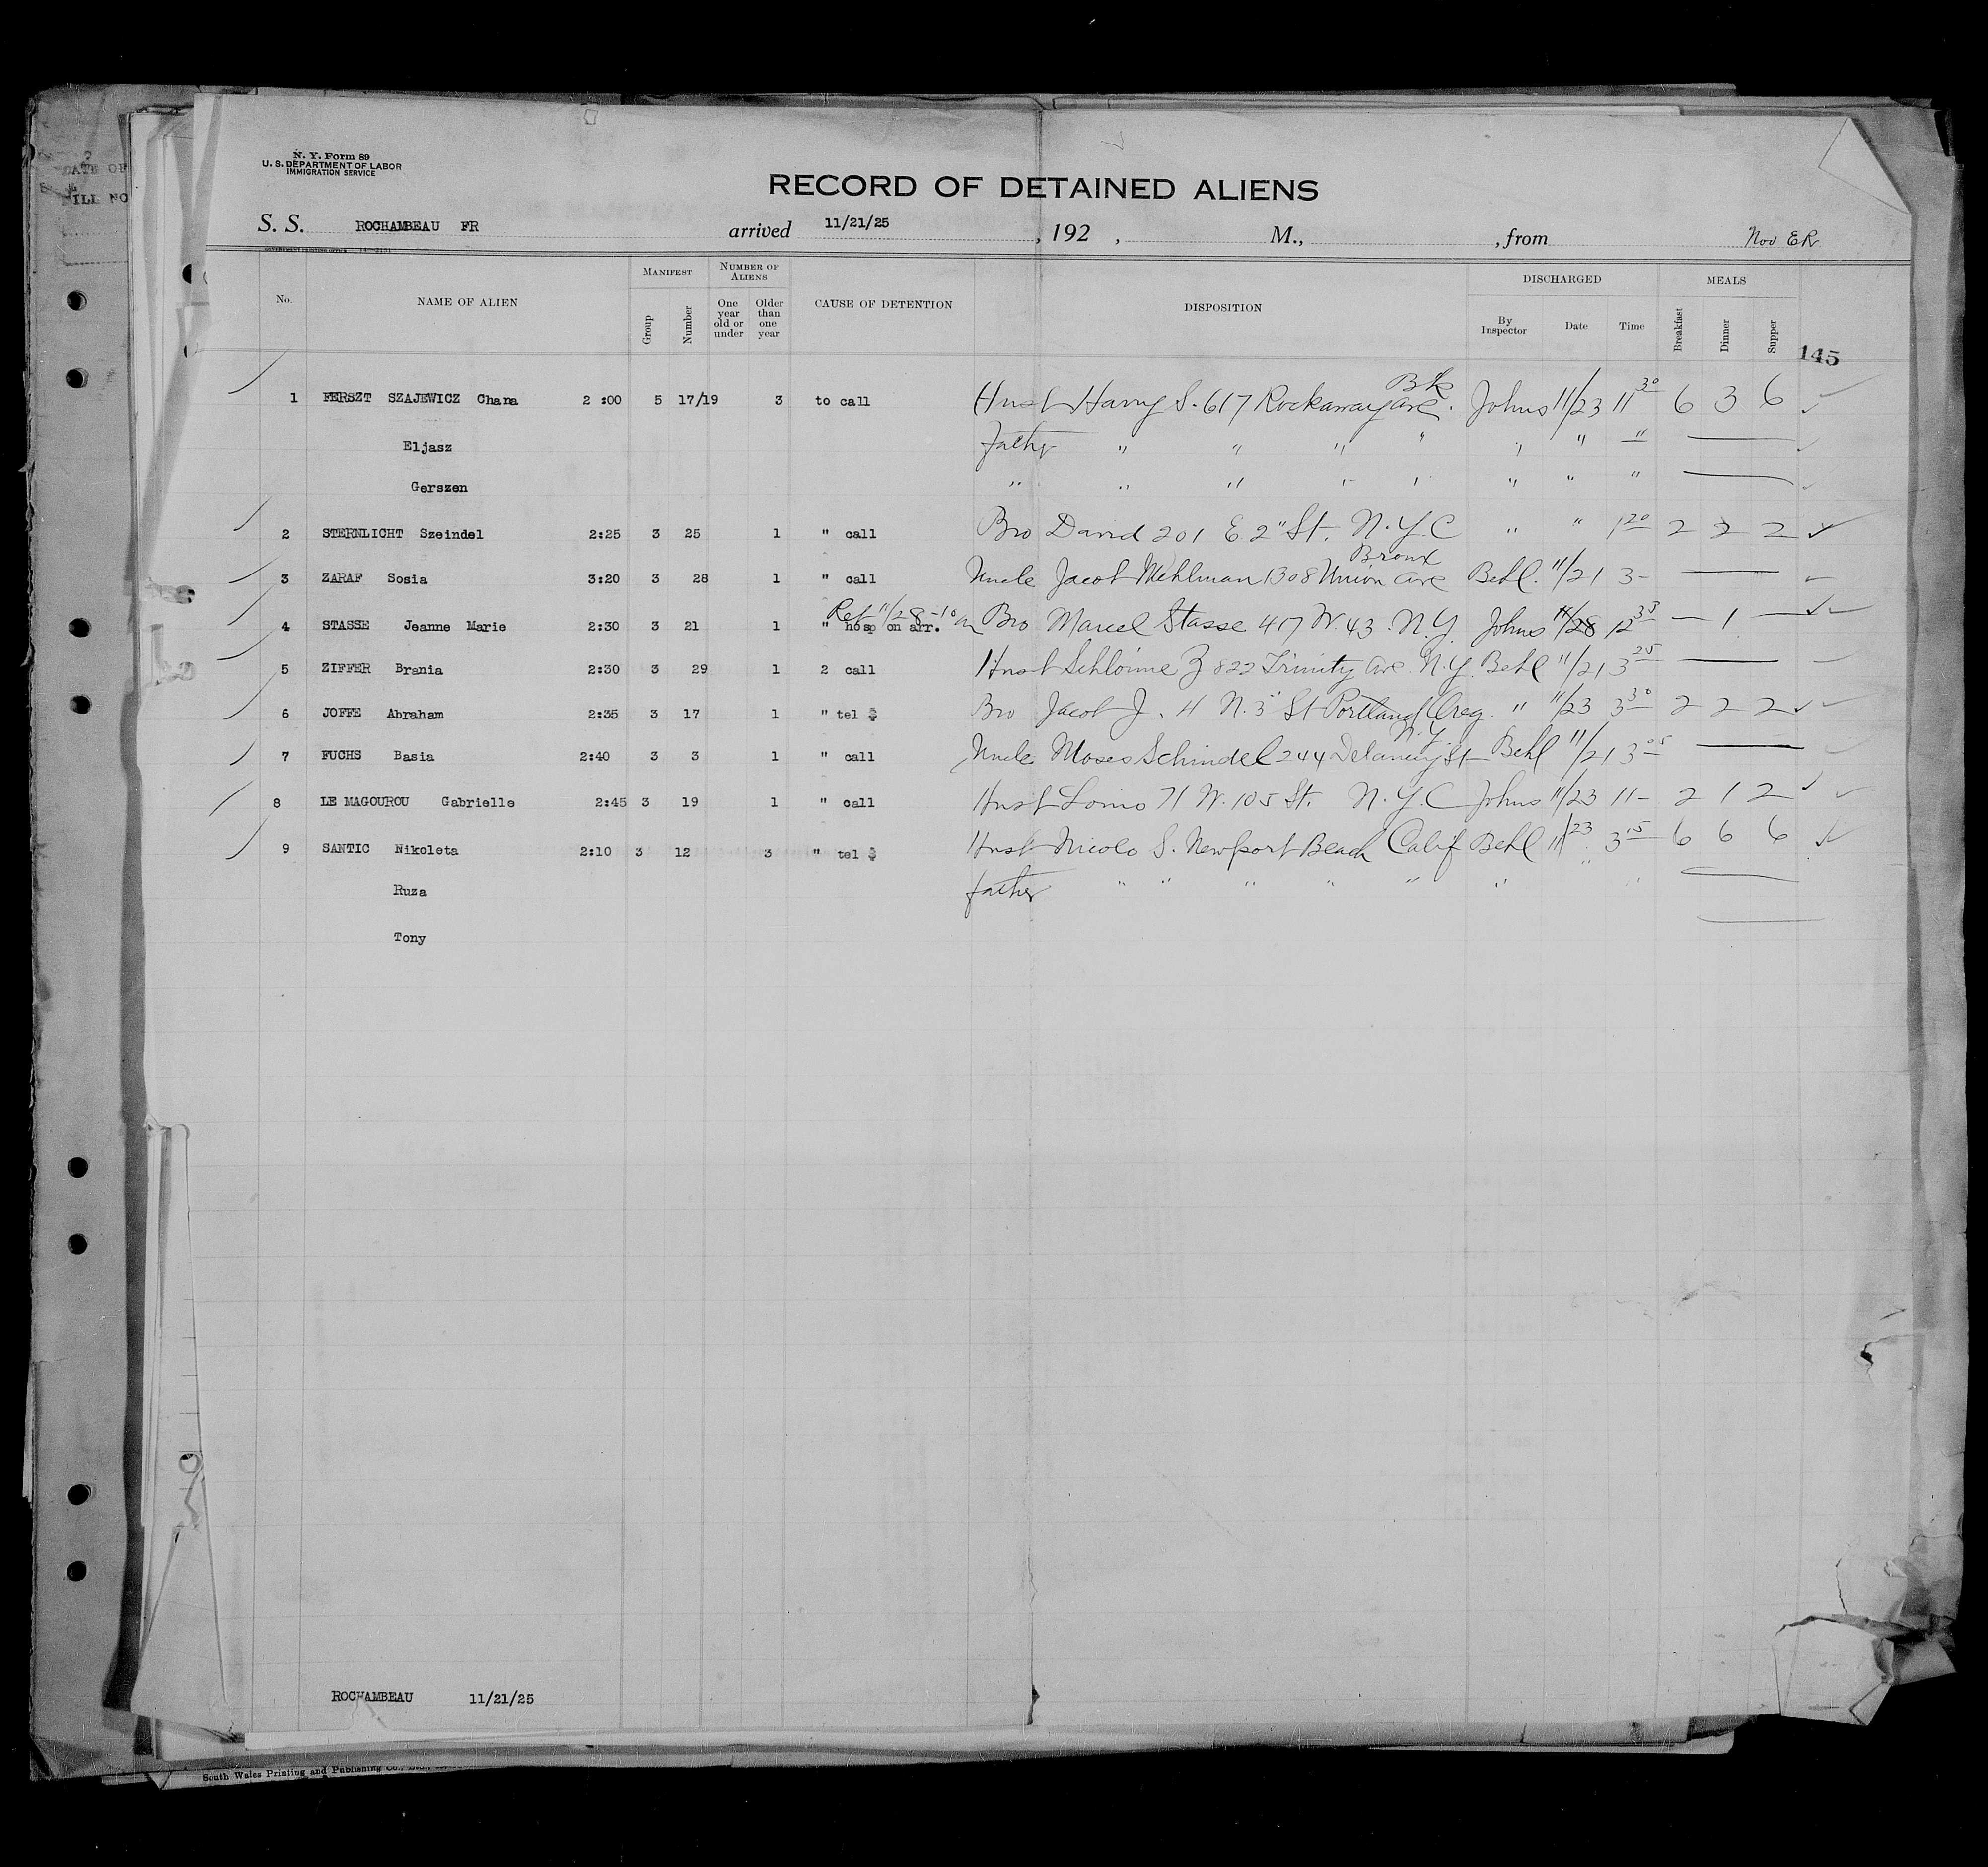 N. Y. Form 89
U. S. DEPARTMENT OF LABOR
IMMIGRATION SERVICE
DATE OF
RECORD OF DETAINED ALIENS
S. S. ROCHAMBEAU FR arrived 11/21/25 , 192 , M., , from Nov ER
No. NAME OF ALIEN MANIFEST Group Number NUMBER OF ALIENS One year old or under Older than one year CAUSE OF DETENTION DISPOSITION DISCHARGED By Inspector Date Time MEALS Breakfast Dinner Supper
145
1 FERSZT SZAJEWICZ Chana 2 :00 5 17/19 3 to call Husb Harry S. 617 Rockaway ave. Bk Johns 11/23 11 30 6 3 6
Eljasz father " " " " " " "
Gerszen " " " " " " " "
2 STERNLICHT Szeindel 2:25 3 25 1 " call Bro David 201 E. 2" St. N.Y.C " " 1 20 2 2 2
3 ZARAF Sosia 3:20 3 28 1 " call Uncle Jacob Mehlman 1308 Union ave Bronx Behl. 11/21 3-
4 STASSE Jeanne Marie 2:30 3 21 1 " hosp on arr. 11/28 Bro Marcel Stasse 417 W. 43. N.Y. Johns 11/28 12 35 — 1 —
5 ZIFFER Brania 2:30 3 29 1 2 call Husb Schloime Z 822 Trinity ave N.Y. Behl 11/21 3 25
6 JOFFE Abraham 2:35 3 17 1 " tel $ Bro Jacob J. N. 3" St Portland Oreg. " 11/23 3 30 2 2 2
7 FUCHS Basia 2:40 3 3 1 " call Uncle Moses Schindel 244 Delancey St N.Y Behl 11/21 3 05
8 LE MAGOUROU Gabrielle 2:45 3 19 1 " call Husb Louis 71 W. 105 St. N.Y.C Johns 11/23 11- 2 1 2
9 SANTIC Nikoleta 2:10 3 12 3 " tel $ Husb Nicolo S. Newport Beach Calif Behl 11/23 3 15 6 6 6
Ruza father " " " " " " " "
Tony
ROCHAMBEAU 11/21/25
South Wales Printing and Publishing Co.,